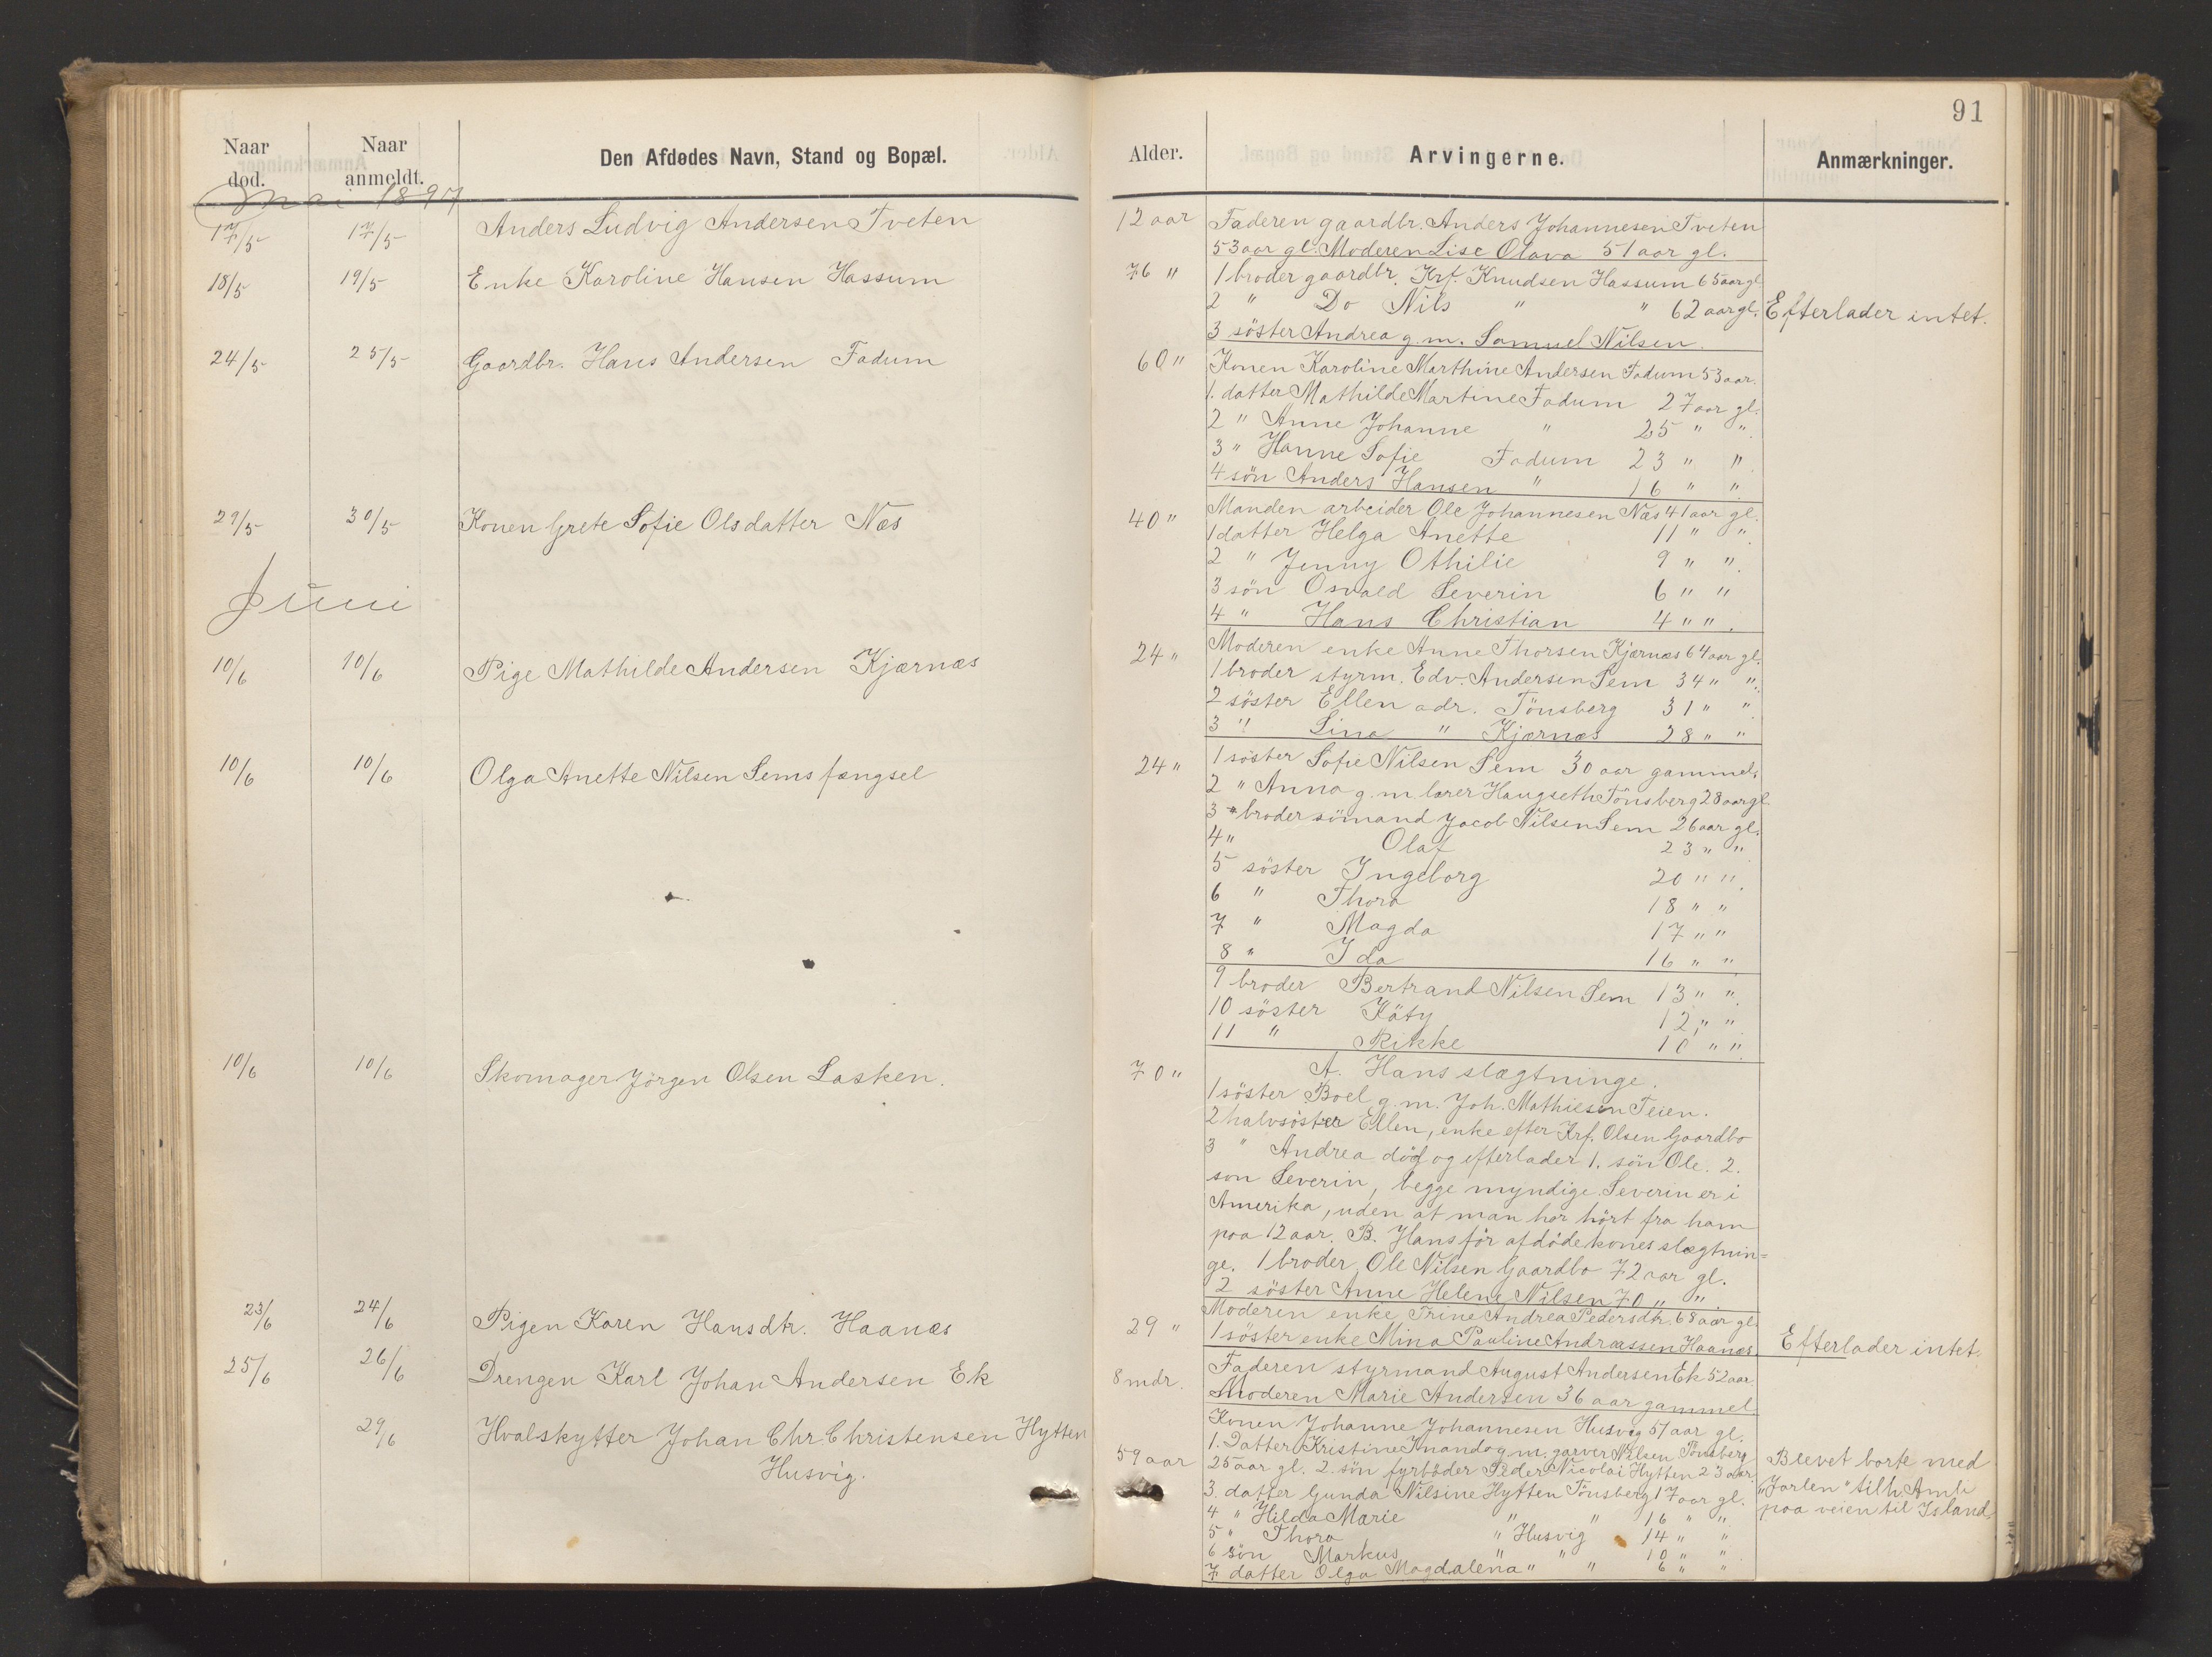 91
Naar død. Naar anmeldt. Den Afdødes Navn, Stand og Bopæl. Alder. Arvingerne. Anmærkninger.
Mai 1897
17/5 17/5 Anders Ludvig Andersen Tveten 12 aar
Faderen gaardbr. Anders Johannesen Tveten
53 aar gl. Moderen Lise Olava 51 aar gl.
18/5 19/5 Enke Karoline Hansen Hassum 76 "
1 broder gaardbr. Krf. Knudsen Hassum 65 aar gl
2 " Do Nils " " 62 aar gl. Efterlader intet.
3 söster Andrea g.m. Samuel Nilsen.
24/5 25/5 Gaardbr. Hans Andersen Fadum 60 "
Konen Karoline Marthine Andersen Fadum 53 aar.
1. datter Mathilde Martine Fadum 27 aar gl.
2 " Anne Johanne " 25 " "
3 " Hanne Sofie Fadum 23 " "
4 sön Anders Hansen " 16 " "
29/5 30/5 Konen Grete Sofie Olsdatter Næs 40 "
Manden arbeider Ole Johannesen Næs 41 aar gl.
1 datter Helga Anette 11 " "
2 " Jenny Othilie 9 " "
3 sön Osvald Severin 6 " "
4 " Hans Christian 4 " "
Juni
10/6 10/6 Pige Mathilde Andersen Kjærnæs 24 "
Moderen enke Anne Thorsen Kjærnæs 64 aar gl.
1 broder styrm. Edv. Andersen Sem 34 " "
2 söster Ellen adr. Tönsberg 31 " "
3 " Lina " Kjærnæs 28 " "
10/6 10/6 Olga Anette Nilsen Sems fængsel 24 "
1 söster Sofie Nilsen Sem 30 aar gammel.
2 " Anna g.m. lærer Haugseth Tönsberg 28 aar gl
3 " broder sömand Jacob Nilsen Sem 26 aar gl.
4 " Olaf 23 " "
5 söster Ingeborg 20 " "
6 " Thora 18 " "
7 " Magda 17 " "
8 " Ida 16 " "
9 broder Bertrand Nilsen Sem 13 " "
10 söster Käty 12 " "
11 " Rikke 10 " "
10/6 10/6 Skomager Jörgen Olsen Lasken. 70 "
A. Hans slægtninge.
1 söster Boel g.m. Joh. Mathiesen Teien.
2 halvsöster Ellen, enke efter Krf. Olsen Gaardbo
3 " Andrea död og efterlader 1. sön Ole. 2.
son Severin, begge myndige. Severin er i
Amerika, uden at man har hört fra ham
paa 12 aar. B. Hans för afdöde kones slægtnin=
ge. 1 broder Ole Nilsen Gaardbo 72 aar gl.
2 söster Anne Helene Nilsen 70 " "
23/6 24/6 Pigen Karen Hansdtr. Haanæs 29 "
Moderen enke Trine Andrea Pedersdtr. 68 aar gl.
1 söster enke Mina Pauline Andreassen Haanæs. Efterlader intet.
25/6 26/6 Drengen Karl Johan Andersen Ek 8 mdr.
Faderen styrmand August Andersen Ek 52 aar.
Moderen Marie Andersen 36 aar gammel.
29/6 Hvalskytter Johan Chr. Christensen Hytten
Husvig. 59 aar
Konen Johanne Johannesen Husvig 51 aar gl.
1. Datter Kristine g.m. garver Nilsen Tönsberg
25 aar gl. 2. sön fyrböder Peder Nicolai Hytten 23 aar.
3. datter Gunda Nilsine Hytten Tönsberg 17 aar gl.
4 " Hilda Marie " " 16 " "
5 " Thora " Husvig 14 " "
6 sön Markus " " 10 " "
7 datter Olga Magdalena " " 6 " "
Blevet borte med
"Jarlen" tilh. Amli
paa veien til Island.